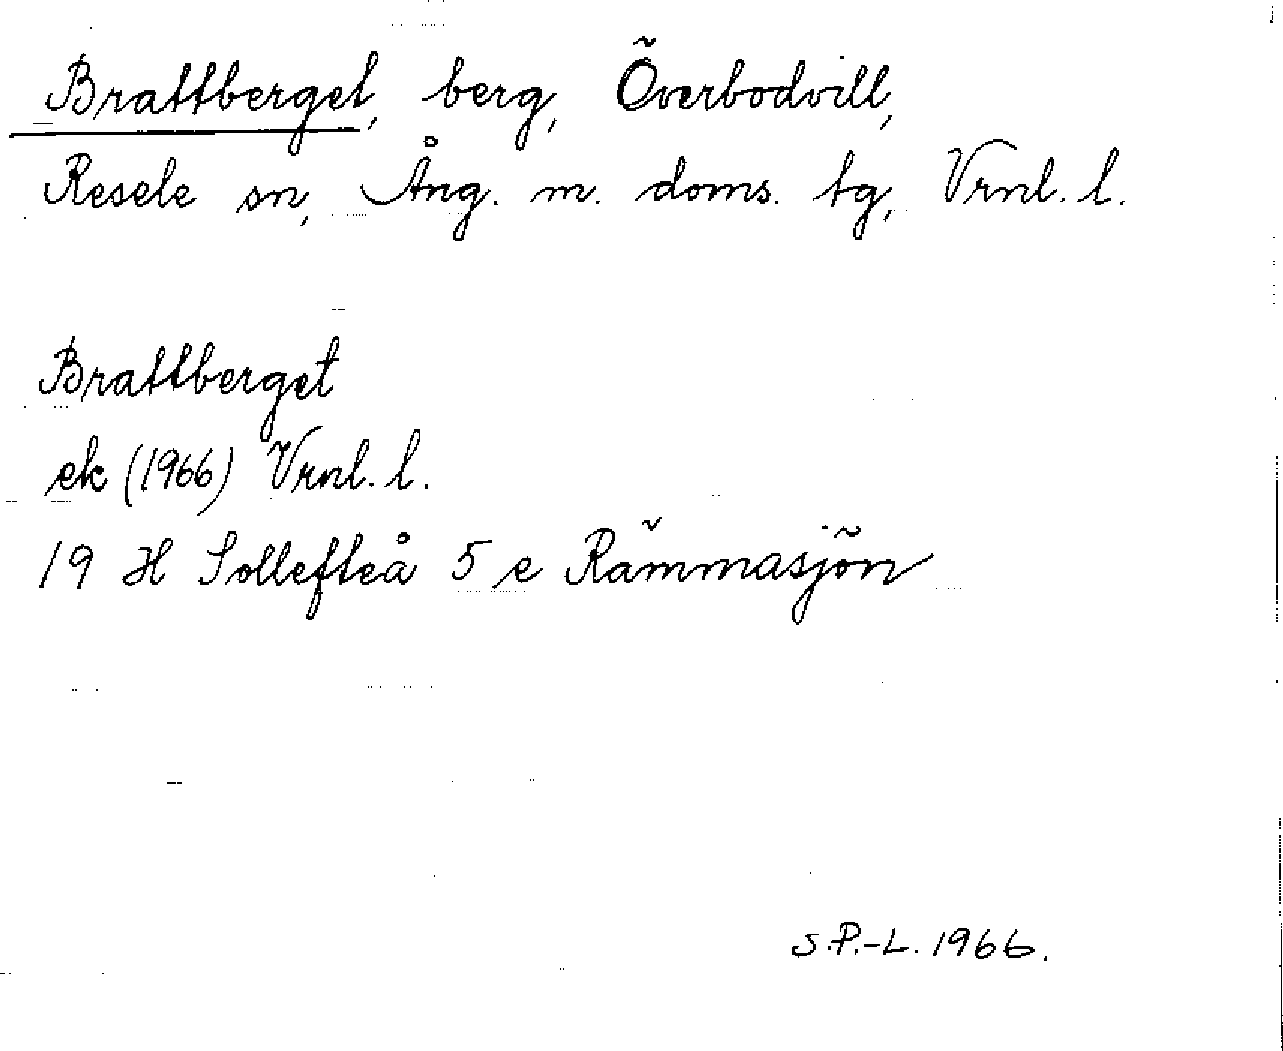 Brattberget, berg, Överbodvill,
Resele sn, Ång. m. doms. tg, Vrnl. l.
Brattberget
ek (1966) Vrnl. l.
19 H Sollefteå 5 e Rämmasjön
S.P.-L. 1966.